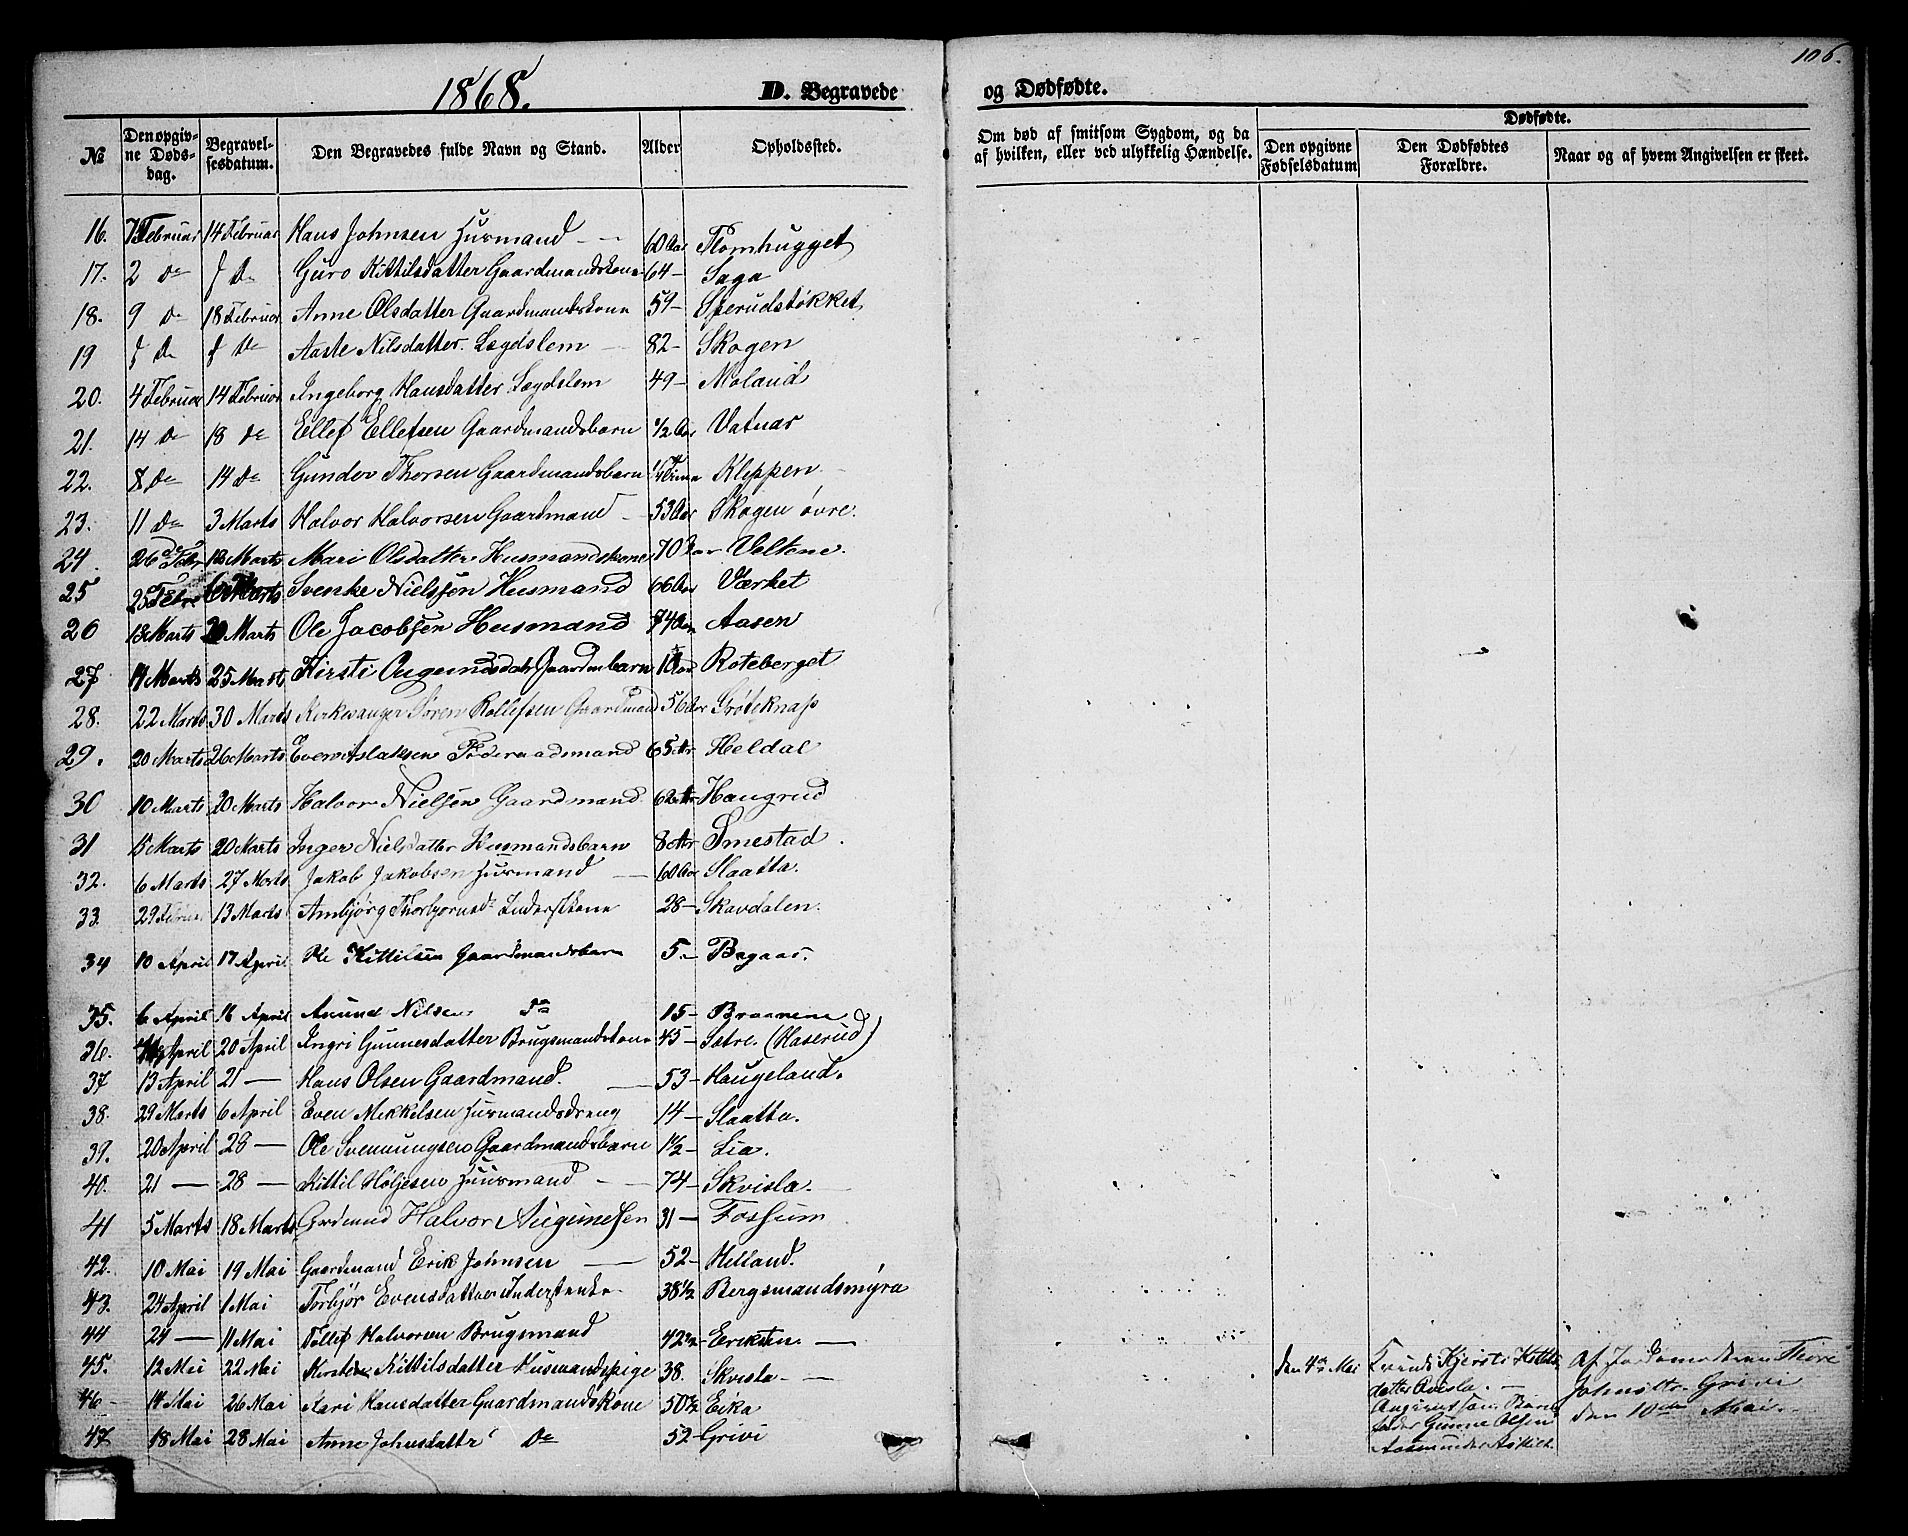 106.
1868.
D. Begravede og Dødfødte.
No
Den opgivne Dødsdag.
Begravelsesdatum.
Den Begravedes fulde Navn og Stand.
Alder
Opholdssted.
Om død af smitsom Sygdom, og da af hvilken, eller ved ulykkelig Hændelse.
Dødfødte.
Den opgivne Fødselsdatum
Den Dødfødtes Forældre.
Naar og af hvem Angivelsen er skeet.
16. 7 Februar 14 Februar Hans Johnsen Huusmand 60 Aar Flomhugget
17. 2 Do Do Guro Kittilsdatter Gaardmandskone 64 - Saga
18. 9 Do 18 Februar Anne Olsdatter Gaardmandskone 59 - Sperudstøkket
19 Do Do Aaste Nilsdatter. Lægdslem 82 - Skogen
20. 4 Februar 14 Februar Ingeborg Hansdatter Lægdslem 49 - Moland
21. 14 Do 18 Do Ellef Ellefsen Gaardmandsbarn 1/2 Aar Vatnar
22. 8 Do 14 Do Gunder Thorsen Gaardmandsbarn Kleppen
23. 11 Do 3 Marts Halvor Halvorsen Gaardmand 53 Aar Skogen øvre.
24. 26 Febr Marts Mari Olsdatter Husmandskone 70 Aar Veltene.
25 25 Febr 6 Marts Svenke Nielssøn Husmand 66 Aar Værket
26 13 Marts 20 Marts Ole Jacobsen Husmand 74 Aar Aasen
27 14 Marts 25 Marst Kirsti Gaardmbarn Roteberget
28. 22 Marts 30 Marts Kirkesanger Søren Rollefsen Gaardmand 56 Aar Grøteknap
29. 20 Marts 26 Marts Even Aslaksen Føderaadsmand 65 Ar Heldal
30 10 Marts 20 Marts Halvor Nielsen Gaardmand 62 Ar Haugrud
31 15 Marts 20 Marts Inger Nielsdatter Husmandsbarn 8 Ar Smestad.
32. 6 Marts 27 Marts Jakob Jakobsen Huusmand 60 Aar Slaatta.
33. 29 13 Marts Ambjørg Thorbjørnsd. Inderstkone 28 - Skavdalen.
34 10 April 17 April Ole Kittilsen Gaardmandsbarn 5 - Bagaas.
35. 6 April 16 April Amund Nilsen Do 15 - Braanene
36. April 20 April Ingri Gunnesdatter Brugsmandskone 45 - Sstre. (Haserud)
37 13 April 21 — Hans Olsen Gaardmand. 53 - Haugeland.
38. 29 Marts 6 April Even Mikkelsen Huusmandsdreng 14 - Slaatta.
39. 20 April 28 — Ole Svenningsen Gaardmandsbarn 1 1/2 - Lia.
40. 21 — 28 — Kittil Høljesen Huusmand 74 - Skvisla.
41 5 Marts 18 Marts Grdmnd Halvor Augunssen 31 - Fossum
42. 10 Mai 19 Mai Gaardmand Erik Johnsen 52 - Helland.
43. 24 April 1 Mai Torbjør Evensdatter 38 1/2 Bergsmandsmyra
44 24 — 11 Mai Tollef Halvorsen Brugsmand 42 1/2 Eriksten
45. 12 Mai 22 Mai Kittilsdatter Husmandspige 38. Skvisla
46 14 Mai 26 Mai Kari Hansdatter Gaardmandskone 50 1/2 Eika
47 18 Mai 28 Mai Anne Johnsdattr Do 52 - Grivi
den 4de Mai
Kjersti
datter
Gunne Olsen
Af Jordemoderen
Johnsdtr. Grivi
den 10de Mai.